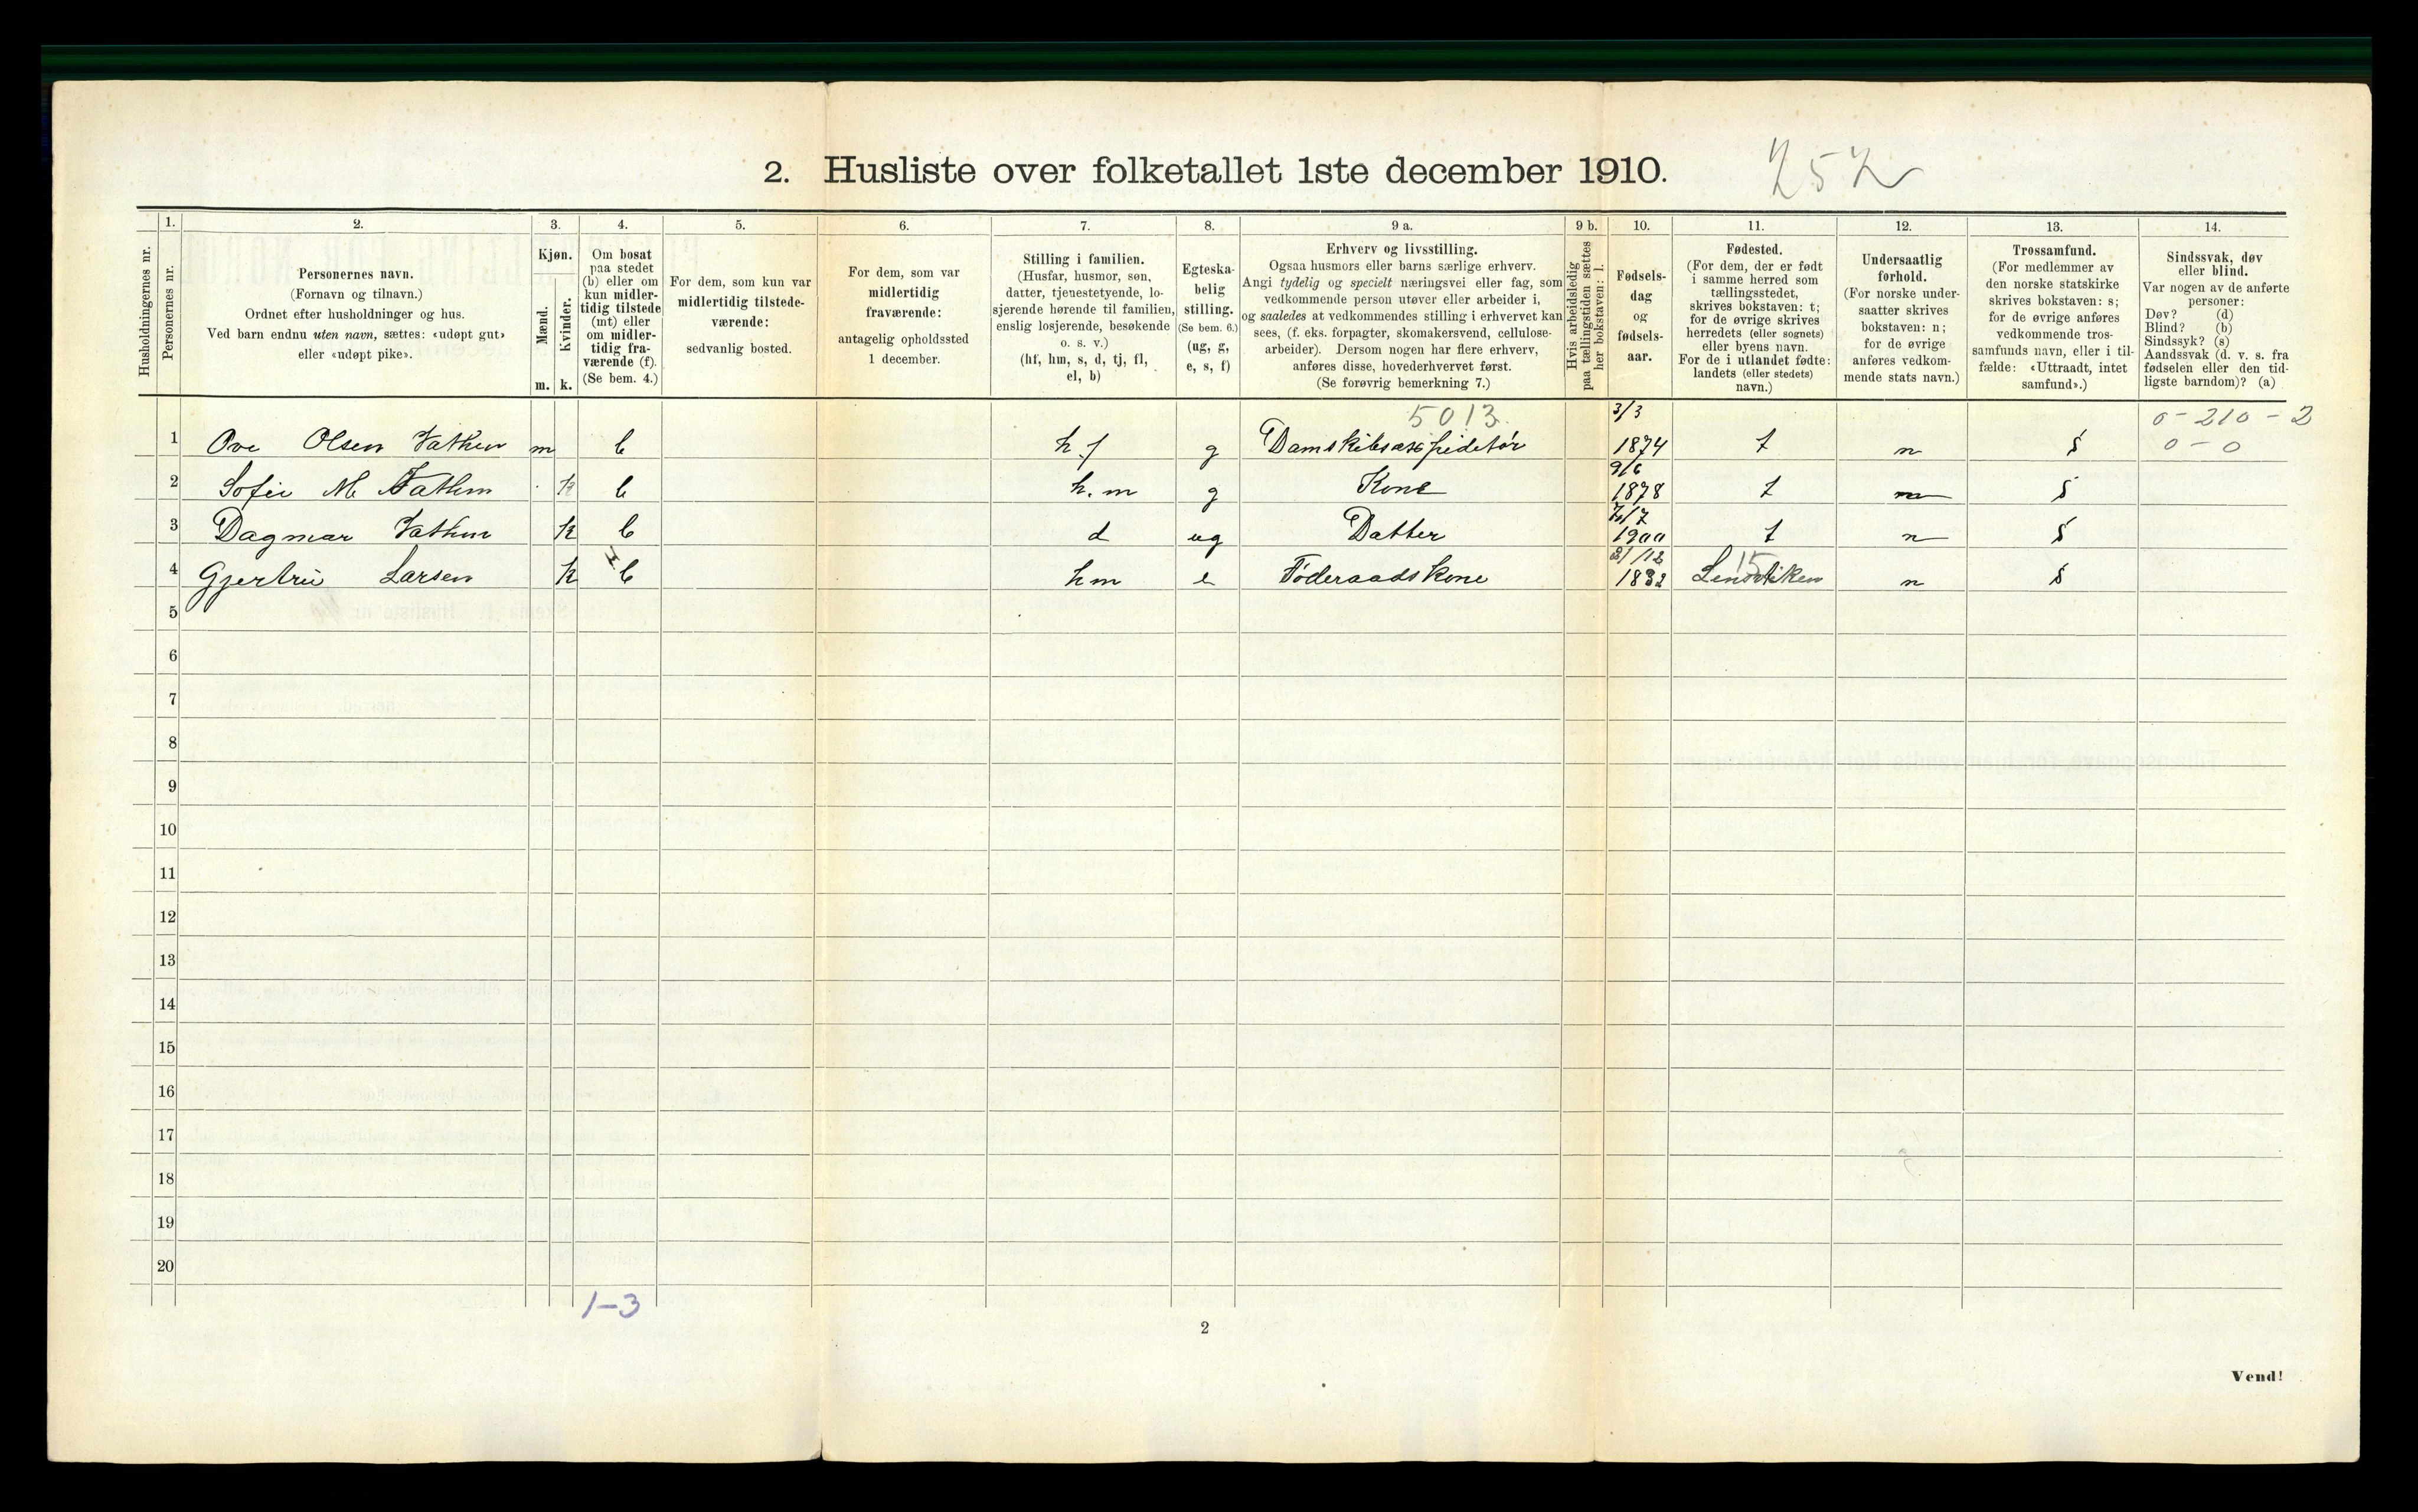 2. Husliste over folketallet 1ste december 1910.
252
Husholdningernes nr.
1.
Personernes nr.
2.
Personernes navn.
(Fornavn og tilnavn.)
Ordnet efter husholdninger og hus.
Ved barn endnu uten navn, sættes: «udøpt gut»
eller «udøpt pike».
3.
Kjøn.
Mænd.
Kvinder.
m. k.
4.
Om bosat
paa stedet
(b) eller om
kun midler-
tidig tilstede
(mt) eller
om midler-
tidig fra-
værende (f).
(Se bem. 4.)
5.
For dem, som kun var
midlertidig tilstede-
værende:
sedvanlig bosted.
6.
For dem, som var
midlertidig
fraværende:
antagelig opholdssted
1 december.
7.
Stilling i familien.
(Husfar, husmor, søn,
datter, tjenestetyende, lo-
sjerende hørende til familien,
enslig losjerende, besøkende
o. s. v.)
(hf, hm, s, d, tj, fl,
el, b)
8.
Egteska-
belig
stilling.
(Se bem. 6.)
(ug, g,
e, s, f)
9 a.
Erhverv og livsstilling.
Ogsaa husmors eller barns særlige erhverv.
Angi tydelig og specielt næringsvei eller fag, som
vedkommende person utøver eller arbeider i,
og saaledes at vedkommendes stilling i erhvervet kan
sees, (f. eks. forpagter, skomakersvend, cellulose-
arbeider). Dersom nogen har flere erhverv,
anføres disse, hovederhvervet først.
(Se forøvrig bemerkning 7.)
9 b.
Hvis arbeidsledig
paa tællingstiden sættes
her bokstaven: l.
10.
Fødsels-
dag
og
fødsels-
aar.
11.
Fødested.
(For dem, der er født
i samme herred som
tællingsstedet,
skrives bokstaven: t;
for de øvrige skrives
herredets (eller sognets)
eller byens navn.
For de i utlandet fødte:
landets (eller stedets)
navn.)
12.
Undersaatlig
forhold.
(For norske under-
saatter skrives
bokstaven: n;
for de øvrige
anføres vedkom-
mende stats navn.)
13.
Trossamfund.
(For medlemmer av
den norske statskirke
skrives bokstaven: s;
for de øvrige anføres
vedkommende tros-
samfunds navn, eller i til-
fælde: «Uttraadt, intet
samfund».)
14.
Sindssvak, døv
eller blind.
Var nogen av de anførte
personer:
Døv? (d)
Blind? (b)
Sindssyk? (s)
Aandssvak (d. v. s. fra
fødselen eller den tid-
ligste barndom)? (a)
5013 3/3 0-210-2
1 Ove Olsen Vathen m b h.f g 1874 t n s 0-0
9/6
2 Sofie M Vathen k b h.m g Kone 1878 t n s
7/7
3 Dagmar Vathen k b d ug Datter 1900 t n s
21/12 15
4 Larsen k b hm e Føderaadskone 1832 n s
5
6
7
8
9
10
11
12
13
14
15
16
17
18
19
20
1-3
2
Vend!